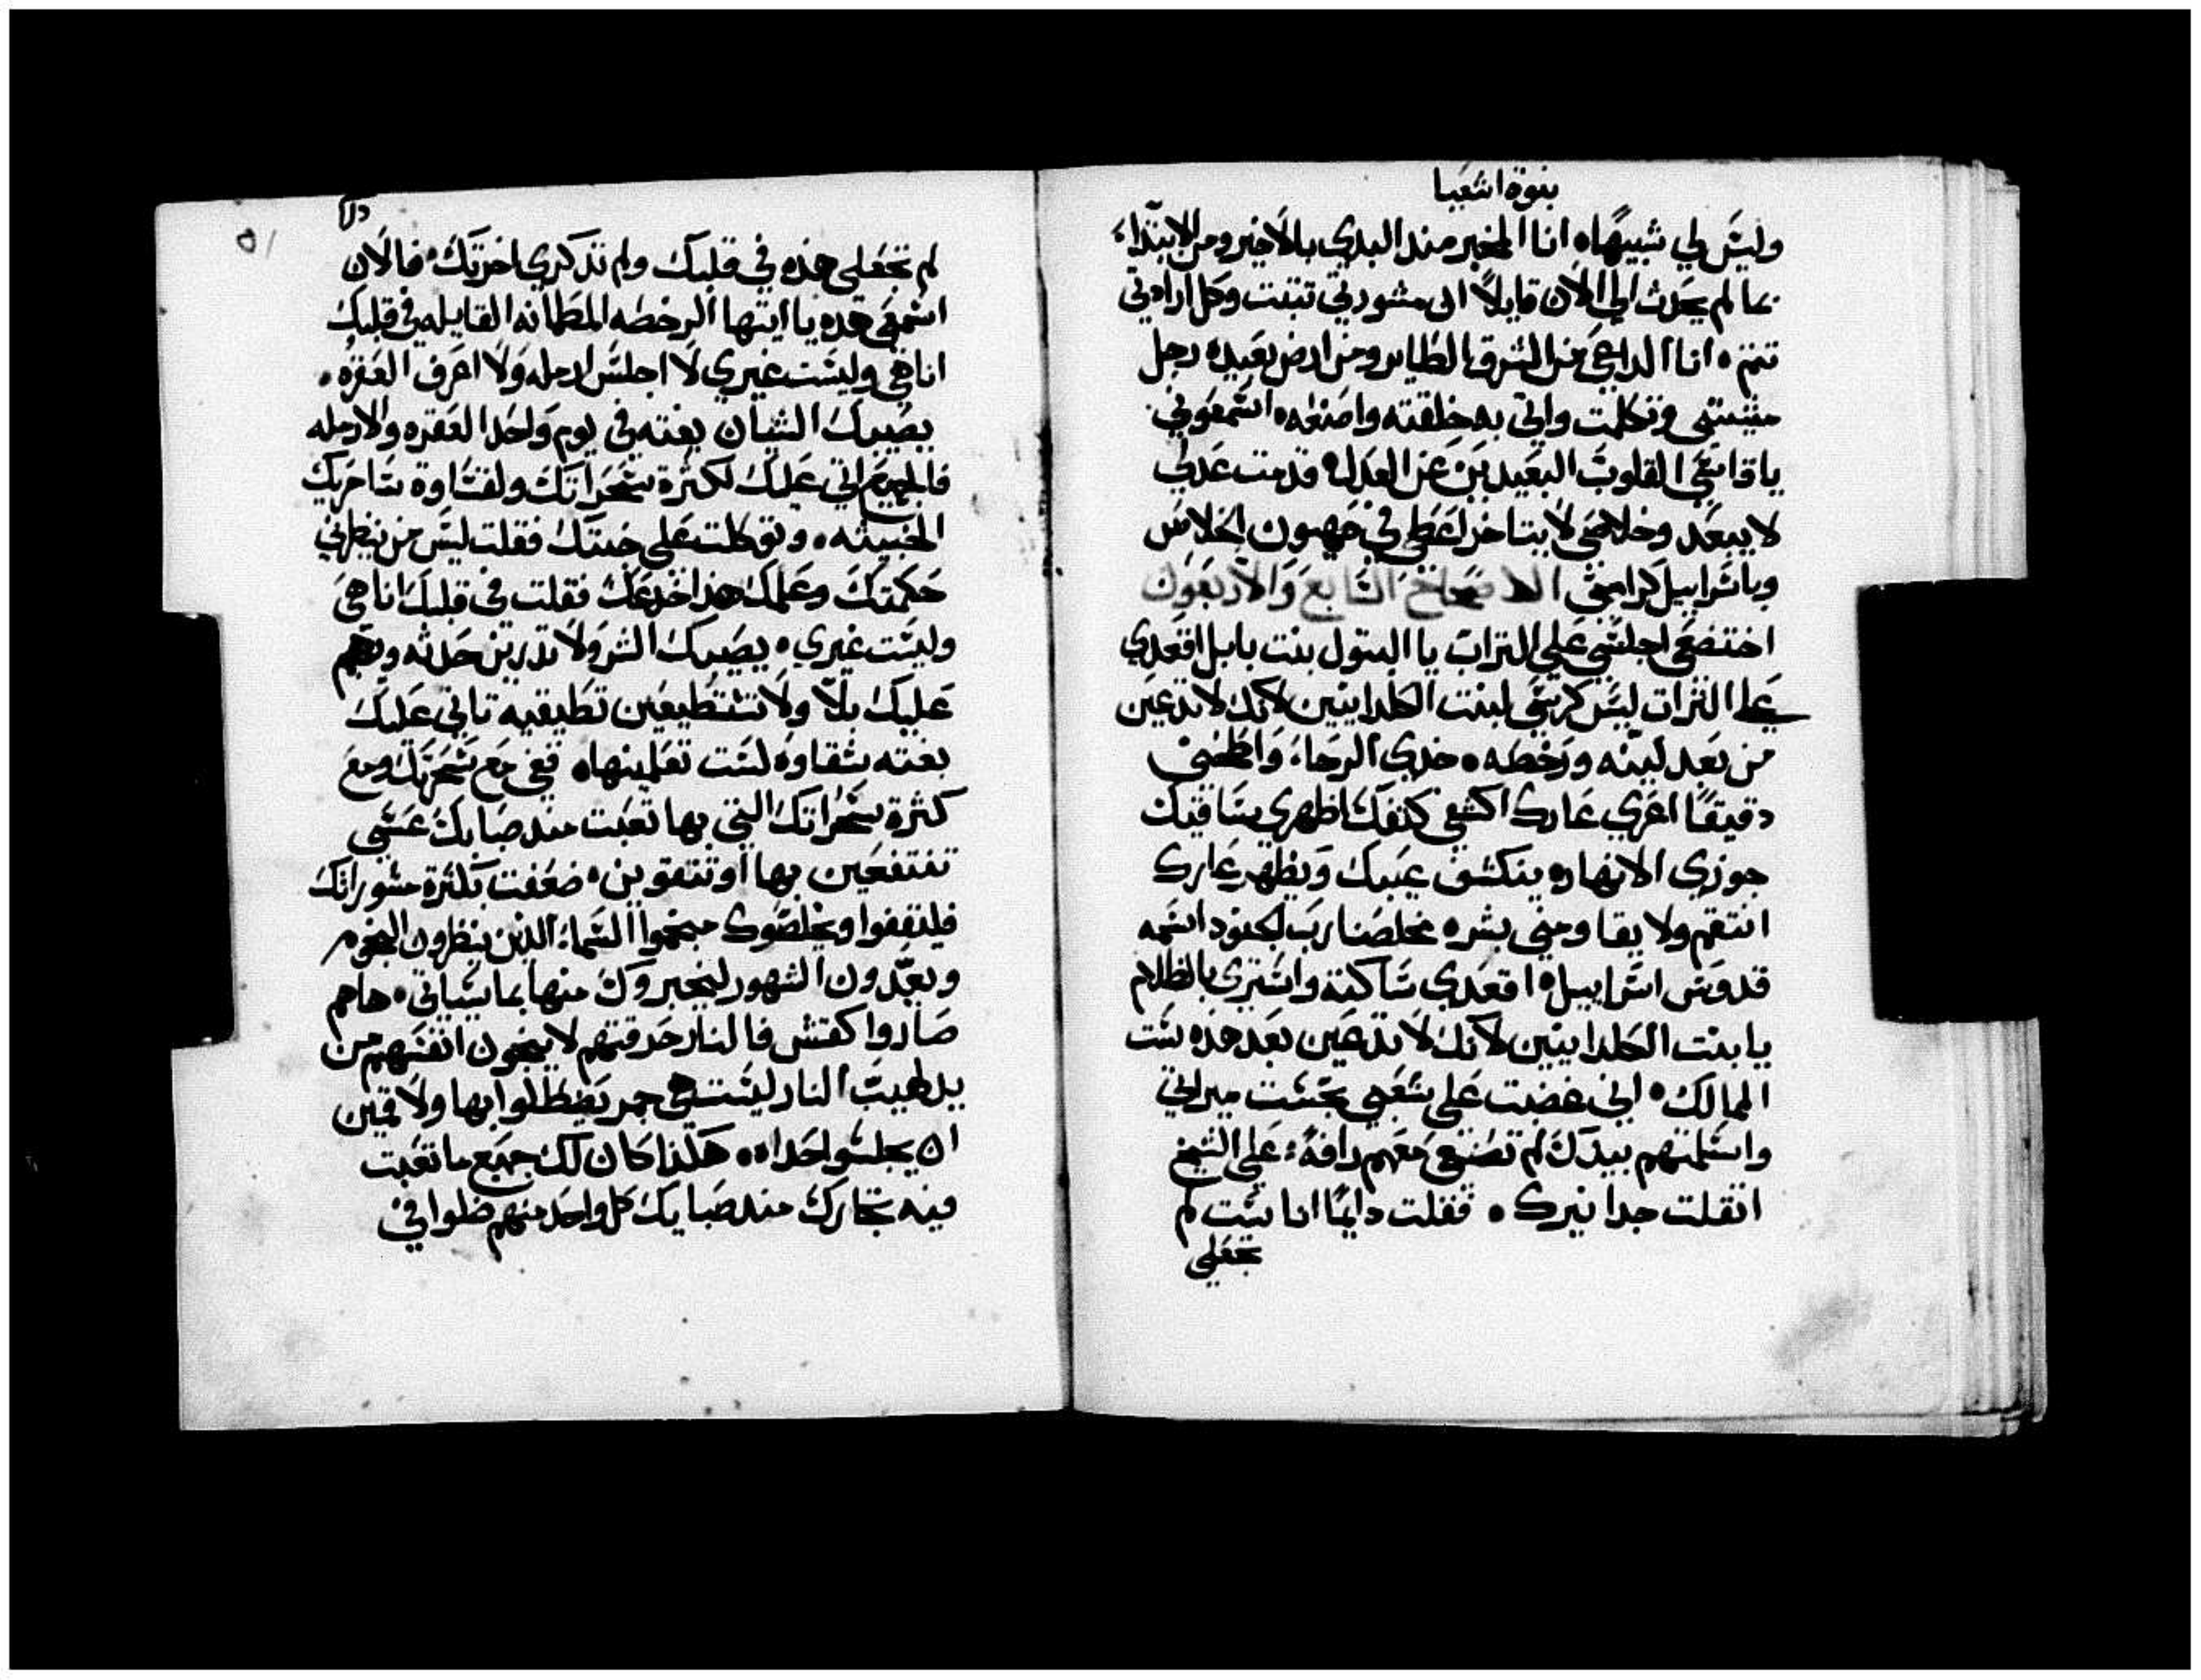 بنوة اشعيا
وليس لي شبيهاه انا المخبر مند البدي بالاخير ومن الابتداء
بما لم يحدث الي الان قايلاً ان مشورتي تتبت وكل ارادتي
تتم ه انا الداعي من الشرق الطاير ومن ارض بعيده رجل
مشيتي وتكلمت واتي به خلقته واصنعه ه اسمعوني
يا قاسي القلوب البعيدين عن العدل ه قدمت عدلي
لا يبعد وخلاصي لا يتاخر اعطي في صهيون الخلاص
وباسراييل كرامتي الاصحاح السابع والاربعون
اختضعي اجلسي علي التراب يا البتول بنت بابل اقعدي
علي التراب ليس كرسي لبنت الكلدانيين لانك لا تدعين
من بعد لينه ورخطه ه خدي الرحاء واطحني
دقيقًا اعري عارك اكشفي كتفك اظهري ساقيك
جوزي الانهار ه ينكشف عيبك ويظهر عارك
انتقم ولا يقاومني بشر ه مخلصنا رب الجنود اسمه
قدوس اسراييل ه اقعدي ساكتة واستتري بالظلام
يا بنت الكلدانيين لانك لا تدعين بعد هده ست
الممالك ه اني غضبت علي شعبي نجست ميراتي
واسلمتهم بيدك لم تصنعي معهم رافة علي الشيخ
اثقلت جدا نيرك ه فقلت دايمًا انا ست لم
تجعلي
لم تجعلي هذه في قلبك ولم تذكري اخرتك ه فالان
اسمعي هده يا ايتها الرخطه المطمانه القايله في قلبك
انا هي وليست غيري لا اجلس ارمله ولا اعرف العقره ه
يصيبك الشيان بغته في يوم واحد العقره والارمله
فالجميع اتي عليك لكثرة سحراتك ولقساوة ساحريك
الخبيثه ه وتوكلت علي خبتك فقلت ليس من ينظرني
حكمتك وعلمك هذا خدعك فقلت في قلبك انا هي
وليست غيري ه يصيبك الشر ولا تدرين حدثه ويهجم
عليك بلا ولا تستطيعين تطيقيه تاتي عليك
بغته شقاوه لست تعلمينها ه قفي مع سحرتك ومع
كثرة سحراتك التي بها تعبت مند صبايك عسي
تنتفعين بها او تتقوين ه ضعفت بكثرة مشوراتك
فليقفوا ويخلصوك منجموا السماء الذين ينظرون النجوم
ويعدون الشهور ليخبروك منها بما سياتي ه هاهم
صاروا كقش فالنار حرقتهم لا ينجون انفسهم من
يد لهيب النار ليست هي جمر يصطلوا بها ولا قمين
ان يجلسوا حداه ه هكذا كان لك جميع ما تعبت
فيه تجارك مند صبايك كل واحد منهم ضلوا في